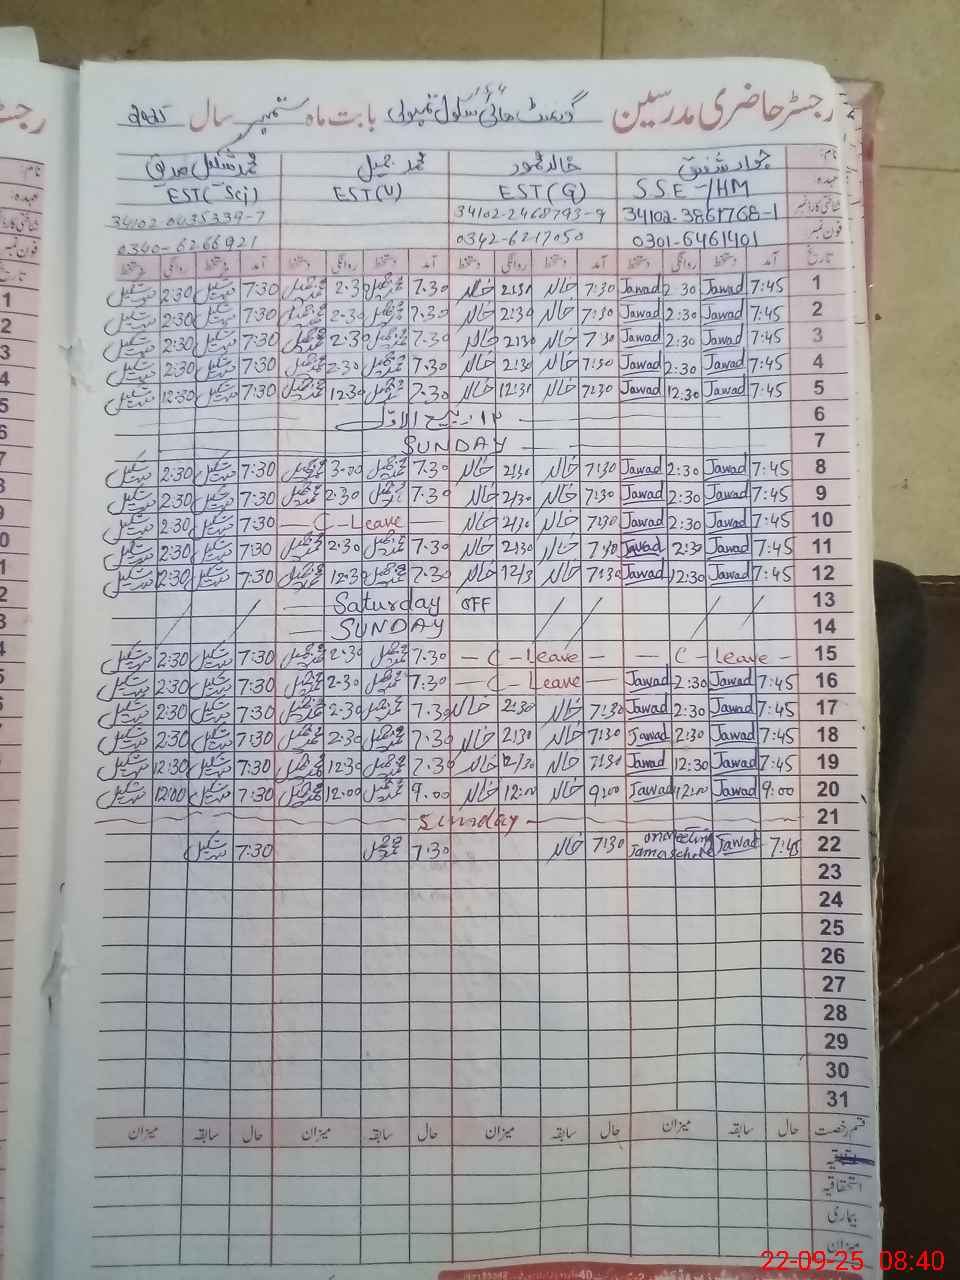 رجسٹر حاضری مدرسین گورنمنٹ ہائی سکول بابت ماہ ستمبر سال 2025
نام: جواد شفیق خالد محمود محمد جمیل محمد شکیل صدیق
عہدہ: SSE-/HM EST(G) EST(U) EST(Sci)
شناختی کارڈ نمبر 34102-3861768-1 34102-2468793-9 34102-0435339-7
فون نمبر: 0301-6461401 0342-6217050 0340-6266921
تاریخ آمد دستخط روانگی دستخط آمد دستخط روانگی دستخط آمد دستخط روانگی دستخط آمد دستخط روانگی دستخط
1 7:45 Jawad 2:30 Jawad 7:30 خالد 2:30 خالد 7.30 محمد جمیل 2.30 محمد جمیل 7:30 شکیل 2:30 شکیل
2 7:45 Jawad 2:30 Jawad 7:30 خالد 2:30 خالد 7.30 محمد جمیل 2.30 محمد جمیل 7:30 شکیل 2:30 شکیل
3 7:45 Jawad 2:30 Jawad 7:30 خالد 2:30 خالد 7.30 محمد جمیل 2.30 محمد جمیل 7:30 شکیل 2:30 شکیل
4 7:45 Jawad 2:30 Jawad 7:30 خالد 2:30 خالد 7.30 محمد جمیل 2.30 محمد جمیل 7:30 شکیل 2:30 شکیل
5 7:45 Jawad 12:30 Jawad 7:30 خالد 12:30 خالد 7.30 محمد جمیل 12.30 محمد جمیل 7:30 شکیل 12:30 شکیل
6 ۱۲ ربیع الاوّل
7 SUNDAY
8 7:45 Jawad 2:30 Jawad 7:30 خالد 2:30 خالد 7.30 محمد جمیل 3-00 محمد جمیل 7:30 شکیل 2:30 شکیل
9 7:45 Jawad 2:30 Jawad 7:30 خالد 2:30 خالد 7.30 محمد جمیل 2.30 محمد جمیل 7:30 شکیل 2:30 شکیل
10 7:45 Jawad 2:30 Jawad 7:30 خالد 2:30 خالد C-Leave 7:30 شکیل 2:30 شکیل
11 7:45 Jawad 2:30 Jawad 7:30 خالد 2:30 خالد 7.30 محمد جمیل 2.30 محمد جمیل 7:30 شکیل 2:30 شکیل
12 7:45 Jawad 12:30 Jawad 7:30 خالد 12/3 خالد 7.30 محمد جمیل 12.30 محمد جمیل 7:30 شکیل 12:30 شکیل
13 Saturday OFF
14 SUNDAY
15 C-Leave C-Leave 7.30 محمد جمیل 2.30 محمد جمیل 7:30 شکیل 2:30 شکیل
16 7:45 Jawad 2:30 Jawad C-Leave 7.30 محمد جمیل 2.30 محمد جمیل 7:30 شکیل 2:30 شکیل
17 7:45 Jawad 2:30 Jawad 7:30 خالد 2:30 خالد 7.30 محمد جمیل 2.30 محمد جمیل 7:30 شکیل 2:30 شکیل
18 7:45 Jawad 2:30 Jawad 7:30 خالد 2:30 خالد 7.30 محمد جمیل 2.30 محمد جمیل 7:30 شکیل 2:30 شکیل
19 7:45 Jawad 12:30 Jawad 7:30 خالد 12/30 خالد 7.30 محمد جمیل 12.30 محمد جمیل 7:30 شکیل 12:30 شکیل
20 9:00 Jawad 12:00 Jawad 9:00 خالد 12:00 خالد 9.00 محمد جمیل 12.00 محمد جمیل 7:30 شکیل 12:00 شکیل
21 Sunday
22 7:45 Jawad on meeting 7:30 خالد 7.30 محمد جمیل 7:30 شکیل
23
24
25
26
27
28
29
30
31
قسم رخصت حال سابقہ میزان حال سابقہ میزان حال سابقہ میزان حال سابقہ میزان
استحقاقیہ
بیماری
میزان
22-09-25 08:40